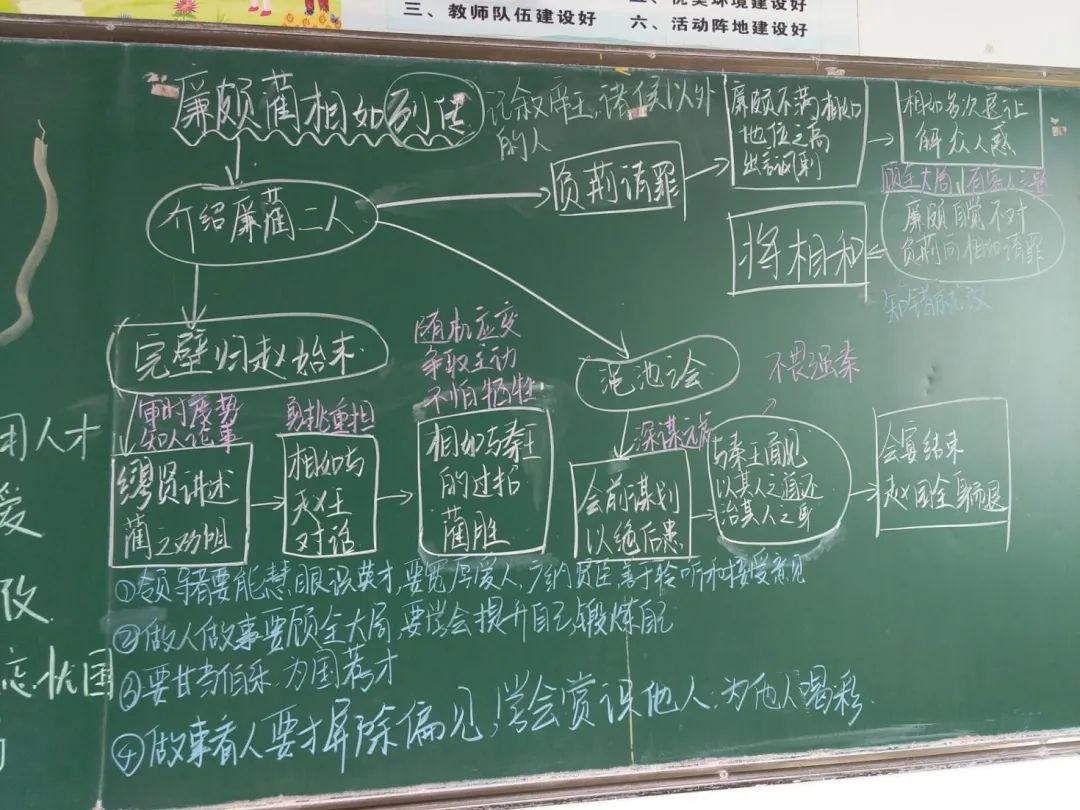 三、教师队伍建设好
六、活动阵地建设好
廉颇蔺相如列传
记叙帝王,诸侯以外
的人
介绍廉蔺二人
负荆请罪
廉颇不满相如
地位之高
出言讽刺
相如多次退让
解众人惑
顾全大局
廉颇自觉不对
负荆向相如请罪
知错能改
将相和
完璧归赵始末
审时度势
知人论事
缪贤讲述
蔺之劝阻
勇挑重担
相如与
赵王
对话
随机应变
争取主动
不怕牺牲
相如与秦王
的过招
蔺胜
渑池之会
深谋远虑
会前谋划
以绝后患
不畏强秦
与秦王面见
以其人之道还
治其人之身
会宴结束
赵国全身而退
①领导者要能慧眼识英才,要宽厚爱人,广纳贤臣,善于聆听和接受意见
②做人做事要顾全大局,要学会提升自己,锻炼自己
③要甘当伯乐.为国荐才
④做事看人要才屏除偏见,学会赏识他人.为他人喝彩.
用人才
爱
改
忘忧国